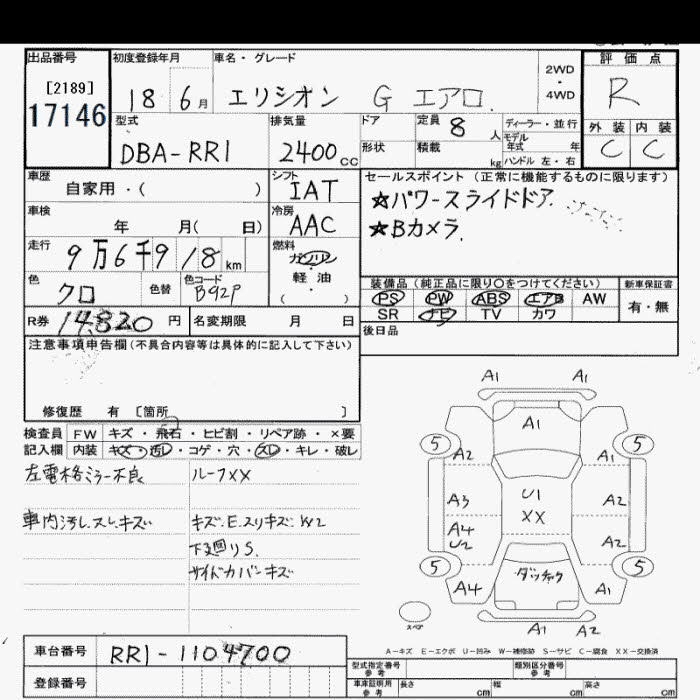 出品番号 初度登録年月 車名・グレード 2WD・4WD 評価点
[2189]
17146
18 6月 エリシオン G エアロ. R
型式 排気量 ドア 定員 8人 ディーラー・並行 外装 内装
DBA-RR1 2400cc 形状 積載 kg モデル年式 年 ハンドル 左・右 C C
車歴 シフト セールスポイント (正常に機能するものに限ります)
自家用・( ) IAT ☆パワースライドドア.
車検 冷房 ☆Bカメラ.
年 月( 日) AAC
走行 9万6千918km 燃料 ガソリン
軽・油
( ・ )
色 クロ 色替 色コード B92P
装備品 (純正品に限り○をつけてください) 新車保証書
PS PW ABS エアB AW 有・無
SR ナビ TV カワ
R券 14,820円 名変期限 月 日 後日品
注意事項申告欄 (不具合内容等は具体的に記入して下さい)
修復歴 有 [箇所 ]
検査員 FW キズ・飛石・ヒビ割・リペア跡・×要
記入欄 内装 キズ・汚レ・コゲ・穴・スレ・キレ・破レ
左電格ミラー不良 ルーフXX
車内汚レ.スレ.キズ キズ.E.スリキズ.W2
下廻りS.
サイドカバーキズ
A1 A1
A1
5 5
A2 A1
A3 U1 A2
XX
A4
U2 A2
5 5
A4 ダッチャク A1
スペア
A1 A2
A-キズ E-エクボ U-凹み W-補修跡 S-サビ C-腐食 XX-交換済
車台番号 RR1-1104700
登録番号
型式指定番号 参考 類別区分番号 参考
車庫証明用 参考 長さ cm 幅 cm 高さ cm